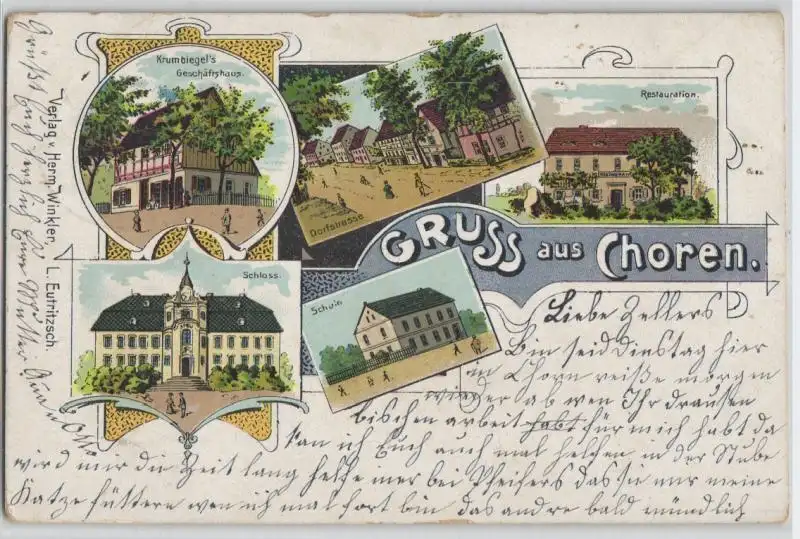 Krumbiegel's
Geschäftshaus.
Dorfstrasse
Restauration.
GRUSS aus Choren.
Schloss.
Schule
Verlag v. Herm. Winkler, L. Eutritzsch.
Liebe Zellers
Bin seid Dinstag hier
in Chorn reiße morgen
wieder ab wen Ihr draußen
bischen arbeit habt für mich habt da
kan ich Euch auch mal helfen in der Stube
wird mir die Zeit lang helfe mer bei Pfeifers das sie mir meine
Katze füttern wen ich mal fort bin das andre bald mündlich
Grüßt Euch herzlich Eure Mutter